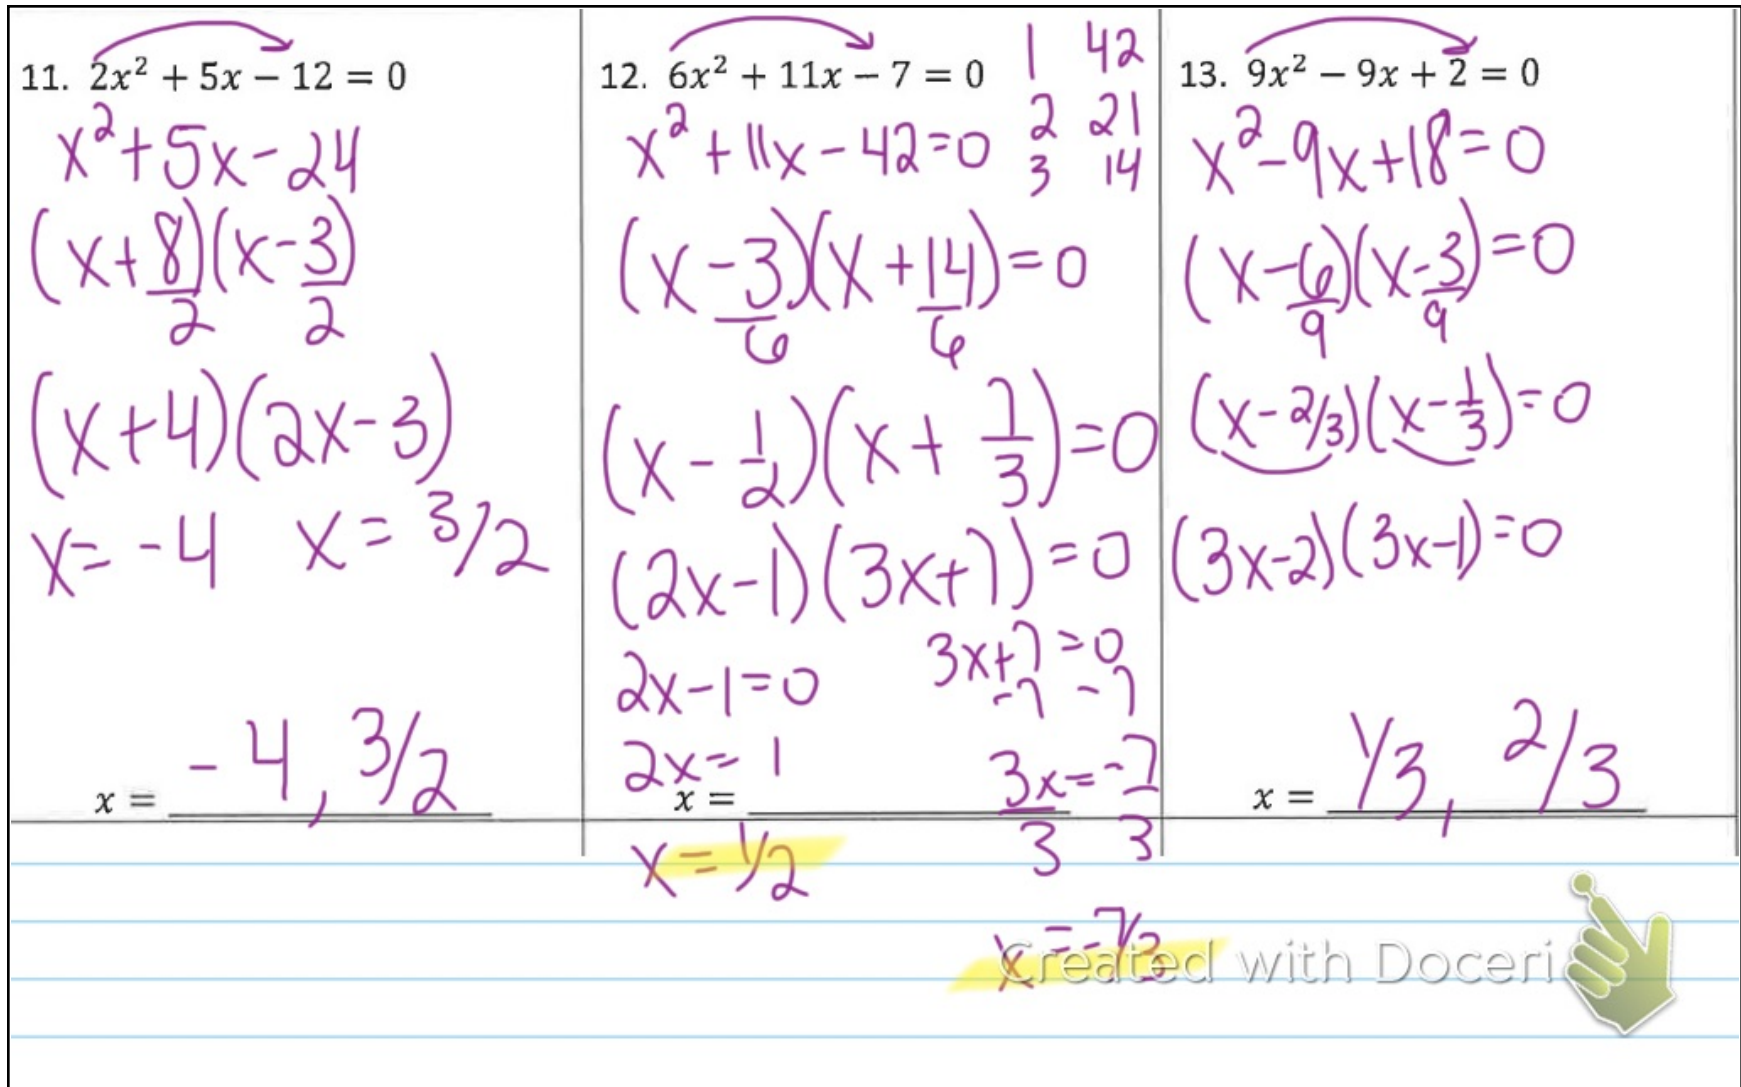 11. 2x² + 5x − 12 = 0
x² + 5x − 24
(x + 8/2)(x − 3/2)
(x + 4)(2x − 3)
x = -4 x = 3/2
x = -4, 3/2
12. 6x² + 11x − 7 = 0
1 42
2 21
3 14
x² + 11x − 42 = 0
(x − 3/6)(x + 14/6) = 0
(x − 1/2)(x + 7/3) = 0
(2x − 1)(3x + 7) = 0
2x − 1 = 0
2x = 1
x =
x = 1/2
3x + 7 = 0
-7 -7
3x = -7
3 3
x = -7/3
13. 9x² − 9x + 2 = 0
x² − 9x + 18 = 0
(x − 6/9)(x − 3/9) = 0
(x − 2/3)(x − 1/3) = 0
(3x − 2)(3x − 1) = 0
x = 1/3, 2/3
Created with Doceri